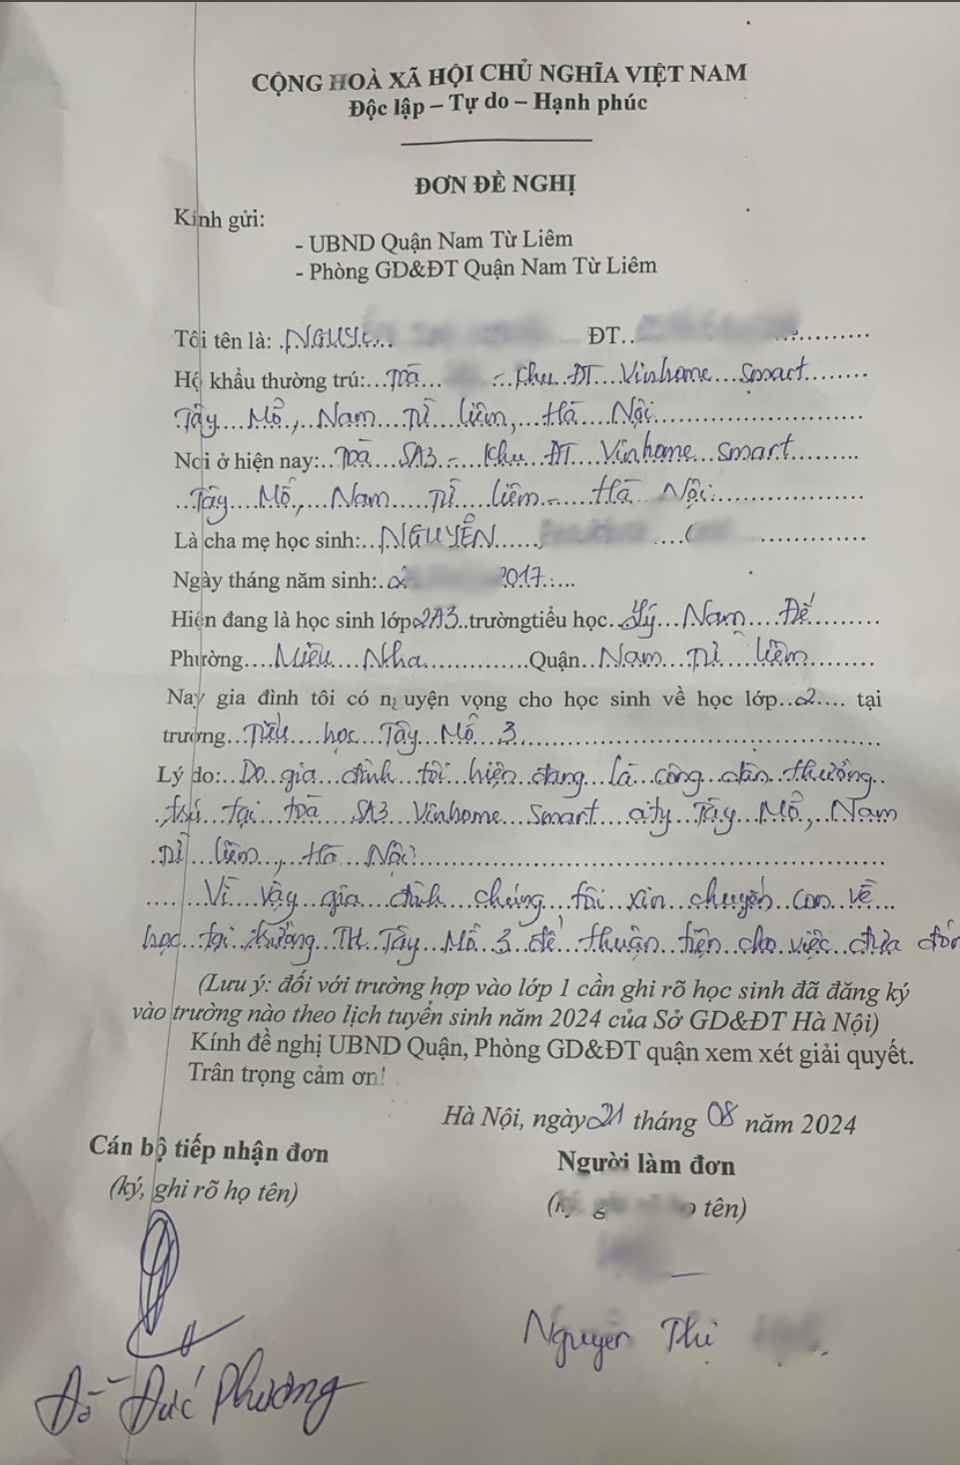 CỘNG HOÀ XÃ HỘI CHỦ NGHĨA VIỆT NAM
Độc lập – Tự do – Hạnh phúc
ĐƠN ĐỀ NGHỊ
Kính gửi:
- UBND Quận Nam Từ Liêm
- Phòng GD&ĐT Quận Nam Từ Liêm
Tôi tên là: ĐT
Hộ khẩu thường trú: Toà - Khu ĐT Vinhome Smart
Tây Mỗ, Nam Từ Liêm, Hà Nội
Nơi ở hiện nay: Toà SA3 - Khu ĐT Vinhome Smart
Tây Mỗ, Nam Từ Liêm - Hà Nội
Là cha mẹ học sinh: NGUYỄN
Ngày tháng năm sinh: 2017
Hiện đang là học sinh lớp 2A3 trường tiểu học Lý Nam Đế
Phường Miêu Nha Quận Nam Từ Liêm
Nay gia đình tôi có nguyện vọng cho học sinh về học lớp 2 tại
trường Tiểu học Tây Mỗ 3
Lý do: Do gia đình tôi hiện đang là công dân thường
trú tại toà SA3 Vinhome Smart city Tây Mỗ, Nam
Từ Liêm, Hà Nội
Vì vậy gia đình chúng tôi xin chuyển con về
học tại trường TH Tây Mỗ 3 để thuận tiện cho việc đưa đón
(Lưu ý: đối với trường hợp vào lớp 1 cần ghi rõ học sinh đã đăng ký
vào trường nào theo lịch tuyển sinh năm 2024 của Sở GD&ĐT Hà Nội)
Kính đề nghị UBND Quận, Phòng GD&ĐT quận xem xét giải quyết.
Trân trọng cảm ơn!
Hà Nội, ngày 21 tháng 08 năm 2024
Cán bộ tiếp nhận đơn Người làm đơn
(ký, ghi rõ họ tên) (ký, ghi rõ họ tên)
Nguyễn Thị
Đỗ Đức Phương